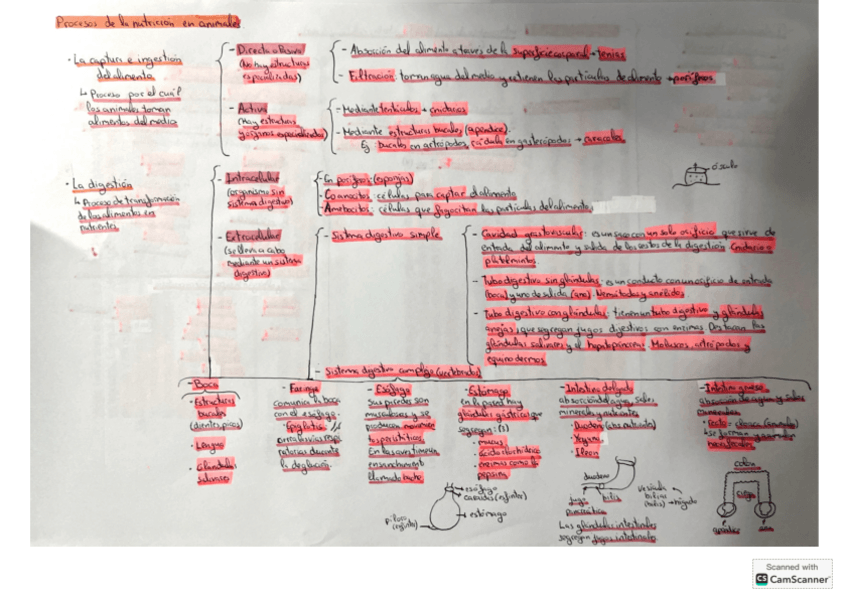 Procesos de la nutrición en animales
· La captura e ingestión del alimento
↳ Proceso por el cual los animales toman alimentos del medio
- Directa o Pasiva (No hay estructuras especializadas)
- Absorción del alimento a través de la superficie corporal → tenias
- Filtración: toman agua del medio y retienen las partículas de alimento → poríferos
- Activa (Hay estructuras y órganos especializados)
- Mediante tentáculos → cnidarios
- Mediante estructuras bucales (apéndice).
Eg: bucales en artrópodos, rádula en gasterópodos → caracoles
· La digestión
↳ Proceso de transformación de los alimentos en nutrientes
- Intracelular (organismo sin sistema digestivo)
- En poríferos (esponjas)
- Coanocitos: células para captar el alimento
- Amebocitos: células que fagocitan las partículas del alimento
ósculo
- Extracelular (se lleva a cabo mediante un sistema digestivo)
- Sistema digestivo simple
- Cavidad gastrovascular: es un saco con un solo orificio que sirve de
entrada del alimento y salida de los restos de la digestión. Cnidarios o
platelmintos
- Tubo digestivo sin glándulas: es un conducto con un orificio de entrada
(boca) y uno de salida (ano). Nematodos y anélidos
- Tubo digestivo con glándulas: tienen un tubo digestivo y glándulas
anejas, que segregan jugos digestivos con enzimas. Destacan las
glándulas salivares y el hepatopáncreas. Moluscos, artrópodos y
equinodermos
- Sistema digestivo complejo (vertebrados)
- Boca
- Estructuras
bucales
(dientes, picos)
· Lengua
· Glándulas
salivares
- Faringe
comunica la boca
con el esófago.
· Epiglotis:
cierra las vías respi
ratorias durante
la deglución.
- Esófago
Sus paredes son
musculosas y se
producen movimien
tos peristálticos
En las aves tiene un
ensanchamiento
llamado buche
- Estómago
en la pared hay
glándulas gástricas que
segregan:
· mucus
· ácido clorhídrico
· enzimas como la
pepsina
- Intestino delgado
absorción de agua, sales
minerales y nutrientes
· Duodeno
· Yeyuno
· Ileon
- Intestino grueso
absorción de agua y sales
minerales
· recto
se forman
heces fecales
esófago
cardias (esfínter)
estómago
píloro
(esfínter)
duodeno
jugo
pancreático
bilis
Vesícula
biliar
(bilis) → hígado
Las glándulas intestinales
segregan jugos intestinales
colon
Scanned with
CS CamScanner